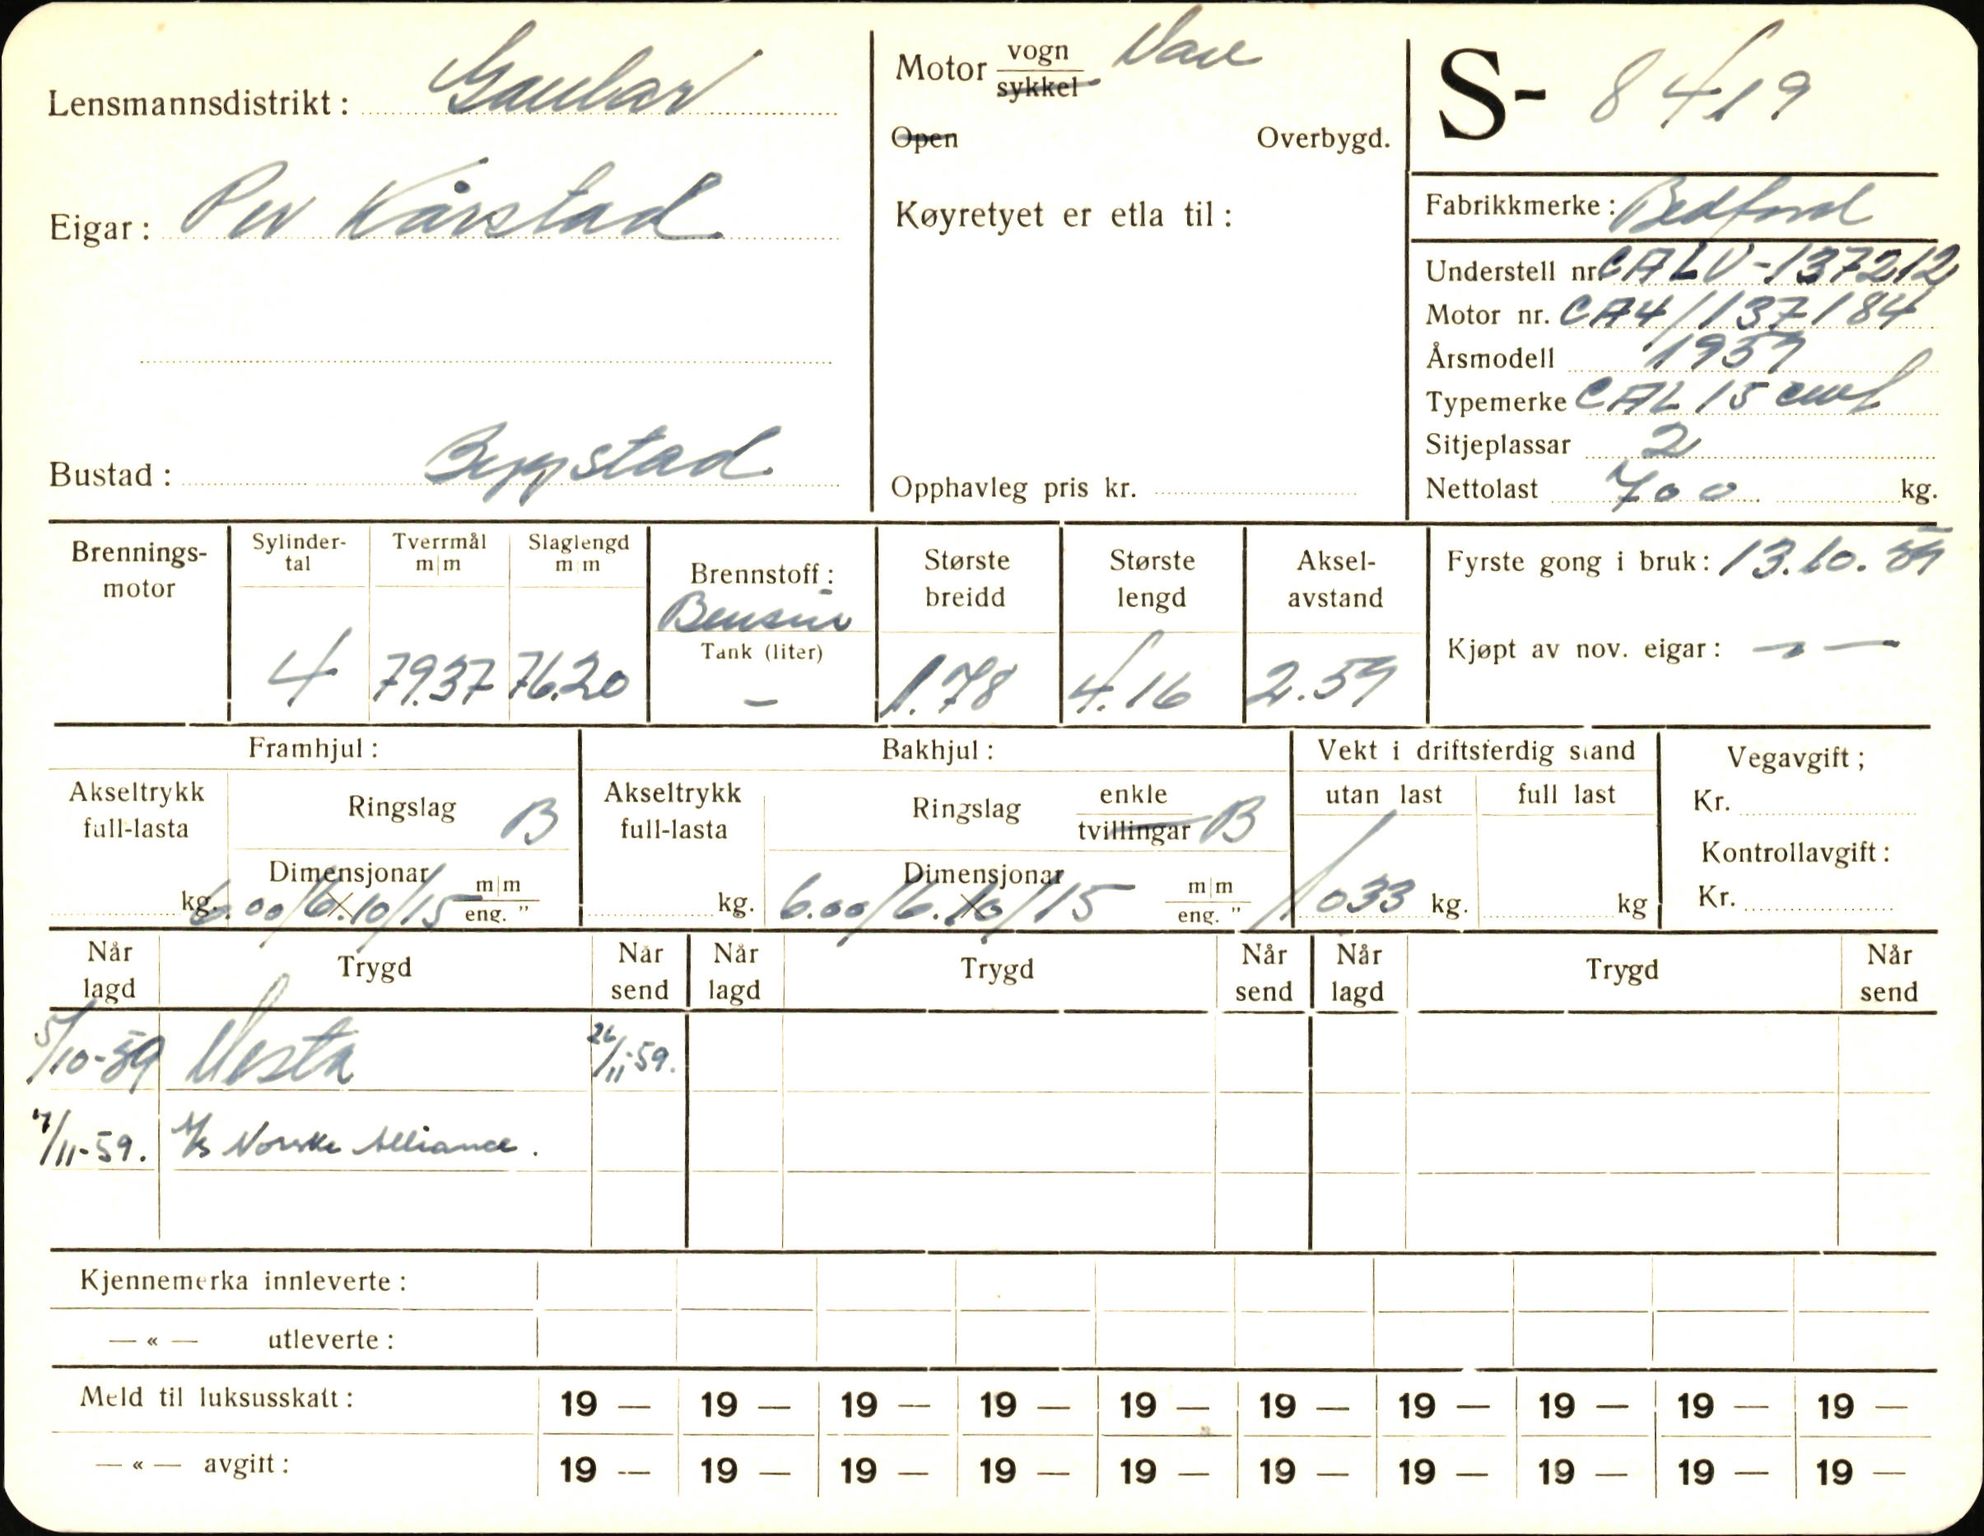 Lensmannsdistrikt: Gaular
Eigar: Per Kårstad
Bustad: Bygstad
Motor vogn Vare
sykkel
Open Overbygd.
Køyretyet er etla til:
Opphavleg pris kr.
S- 8419
Fabrikkmerke: Bedford
Understell nr. CALV-137212
Motor nr. CA4/137184
Årsmodell 1959
Typemerke CAL 15 cwt
Sitjeplassar 2
Nettolast 700 kg.
Brennings-
motor
Sylinder-
tal
4
Tverrmål
m|m
79.37
Slaglengd
m|m
76.20
Brennstoff:
Bensin
Tank (liter)
—
Største
breidd
1.78
Største
lengd
4.16
Aksel-
avstand
2.59
Fyrste gong i bruk: 13.10.59
Kjøpt av nov. eigar: — —
Framhjul:
Akseltrykk
full-lasta
kg.
Ringslag B
Dimensjonar
6.00/6.10/15 m|m
eng. "
Bakhjul:
Akseltrykk
full-lasta
kg.
Ringslag enkle
tvillingar B
Dimensjonar
6.00/6.10/15 m|m
eng. "
Vekt i driftsferdig stand
utan last
1033 kg.
full last
kg
Vegavgift;
Kr.
Kontrollavgift:
Kr.
Når lagd Trygd Når send Når lagd Trygd Når send Når lagd Trygd Når send
5/10-59 Vesta 26/11-59.
/11-59. A/S Norske Alliance.
Kjennemerka innleverte:
— « — utleverte:
Meld til luksusskatt: 19 — 19 — 19 — 19 — 19 — 19 — 19 — 19 — 19 — 19 —
— « — avgift: 19 — 19 — 19 — 19 — 19 — 19 — 19 — 19 — 19 — 19 —